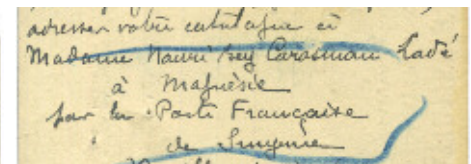 adresser votre catalogue à
Madame Nauri bey Carosman Zadé
à Magnésie
par la Poste Française
de Smyrne